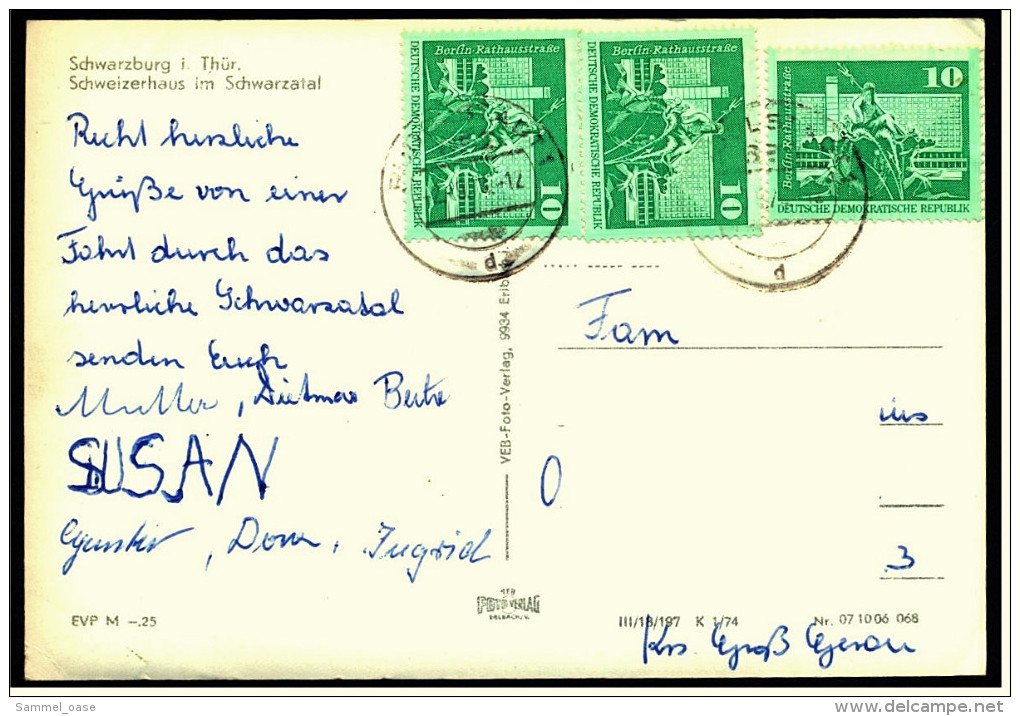 Schwarzburg i. Thür.
Schweizerhaus im Schwarzatal
Recht herzliche
Grüße von einer
Fahrt durch das
herrliche Schwarzatal
senden Euch
Mutter, Dietmar
SUSAN
Ingrid
EVP M -.25
Berlin-Rathausstraße
DEUTSCHE DEMOKRATISCHE REPUBLIK
10
Berlin-Rathausstraße
DEUTSCHE DEMOKRATISCHE REPUBLIK
10
Berlin-Rathausstraße
10
DEUTSCHE DEMOKRATISCHE REPUBLIK
VEB-Foto-Verlag, 9934 Erlb
Fam
0
3
VEB
FOTO VERLAG
III/18/197 K 1/74 Nr. 07 10 06 068
Krs. Groß Gerau
Sammel_oase
www.delcampe.net